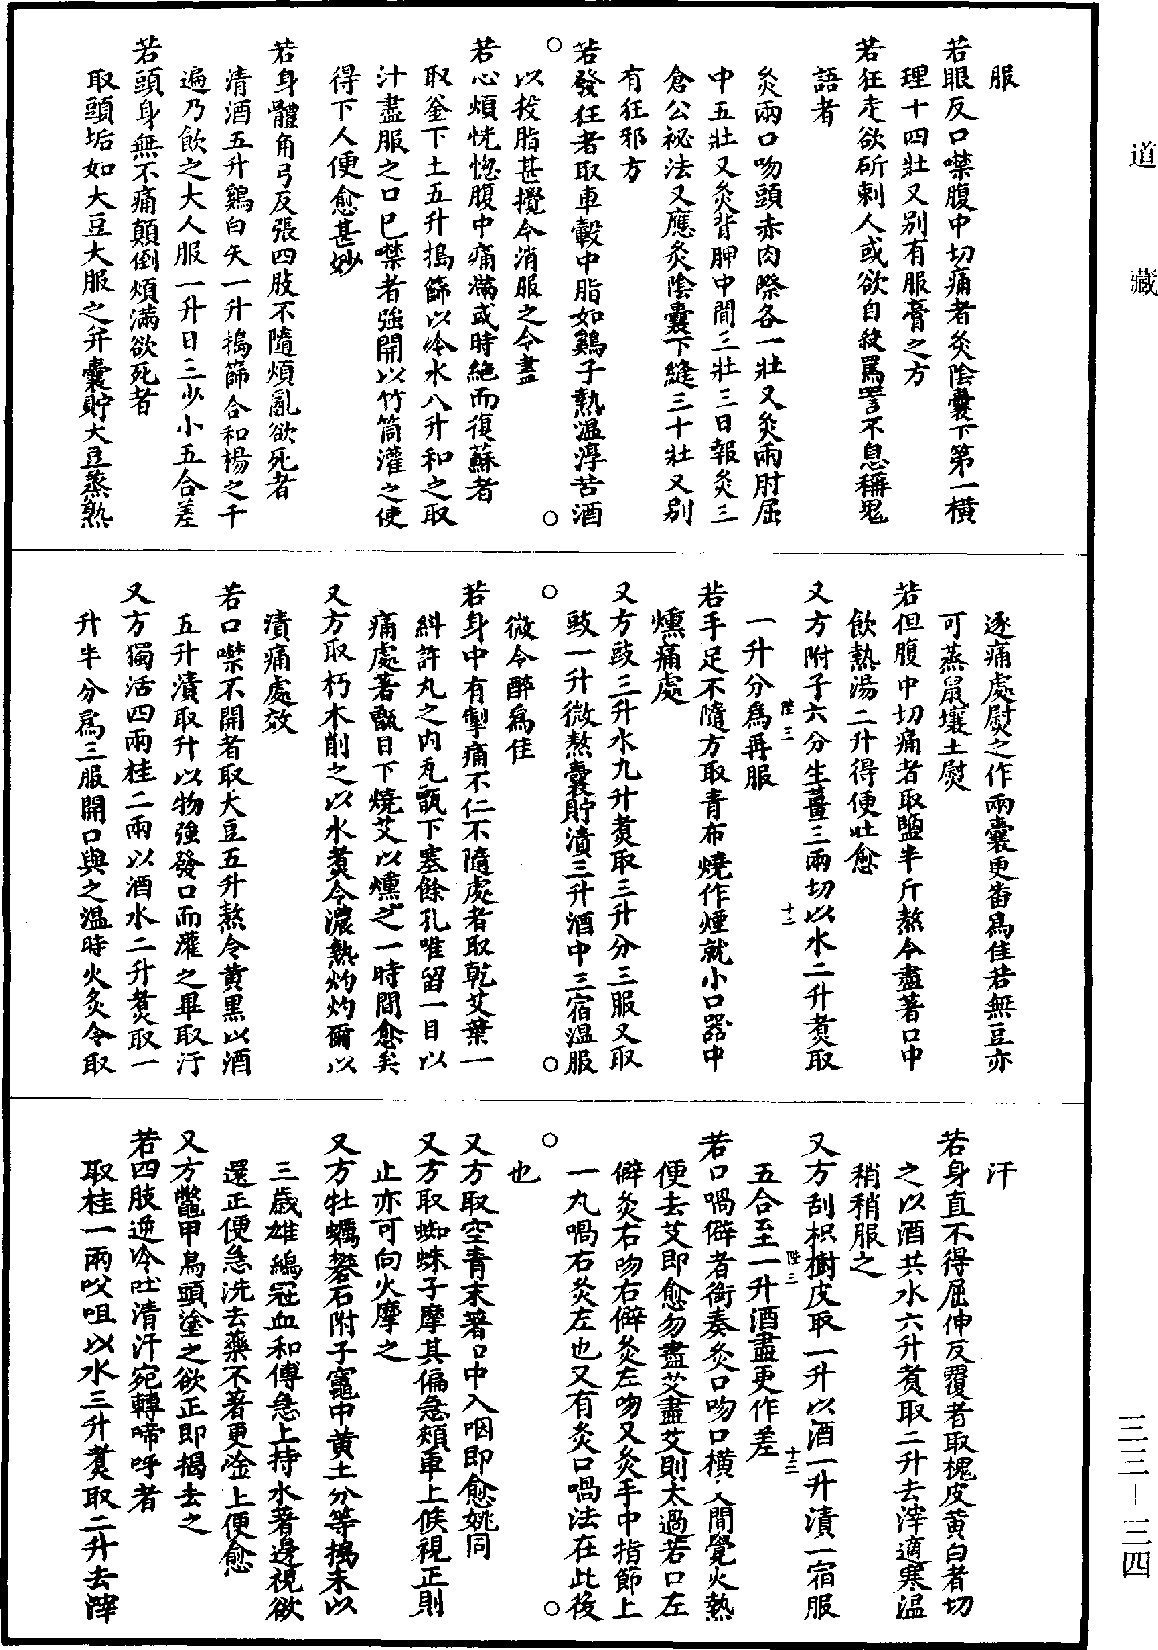 道藏
服
若眼反口噤腹中切痛者灸陰囊下第一橫
理十四壯又別有服膏之方
若狂走欲斫刺人或欲自殺罵詈不息稱鬼
語者
灸兩口吻頭赤肉際各一壯又灸兩肘屈
中五壯又灸背胛中間三壯三日報灸三
倉公祕法又應灸陰囊下縫三十壯又別
有狂邪方
若發狂者取車轂中脂如鷄子熱溫淳苦酒
以投脂甚攪令消服之令盡
若心煩恍惚腹中痛滿或時絕而復蘇者
取釜下土五升搗篩以冷水八升和之取
汁盡服之口已噤者強開以竹筒灌之使
得下人便愈甚妙
若身體角弓反張四肢不隨煩亂欲死者
清酒五升鷄白矢一升搗篩合和楊之千
遍乃飲之大人服一升日三少小五合差
若頭身無不痛顛倒煩滿欲死者
取頭垢如大豆大服之并囊貯大豆蒸熟
逐痛處熨之作兩囊更番爲佳若無豆亦
可蒸鼠壤土熨
若但腹中切痛者取鹽半斤熬令盡著口中
飲熱湯二升得便吐愈
又方附子六分生薑三兩切以水二升煑取
一升分爲再服
陸三
十二
若手足不隨方取青布燒作煙就小口器中
燻痛處
又方豉三升水九升煑取三升分三服又取
豉一升微熬囊貯漬三升酒中三宿溫服
微令醉爲佳
若身中有掣痛不仁不隨處者取乾艾葉一
糾許丸之內瓦甑下塞餘孔唯留一目以
痛處著甑目下燒艾以燻之一時間愈矣
又方取朽木削之以水煑令濃熱灼灼爾以
漬痛處效
若口噤不開者取大豆五升熬令黃黑以酒
五升漬取升以物強發口而灌之畢取汙
又方獨活四兩桂二兩以酒水二升煑取一
升半分爲三服開口與之溫時火灸令取
汗
若身直不得屈伸反覆者取槐皮黃白者切
之以酒共水六升煑取二升去滓適寒溫
稍稍服之
又方刮枳樹皮取一升以酒一升漬一宿服
五合至一升酒盡更作差
陸三
十三
若口喎僻者銜奏灸口吻口橫文間覺火熱
便去艾即愈勿盡艾盡艾則太過若口左
僻灸右吻右僻灸左吻又灸手中指節上
一丸喎右灸左也又有灸口喎法在此後
也
又方取空青末著口中入咽即愈姚同
又方取蜘蛛子摩其偏急頰車上候視正則
止亦可向火摩之
又方牡蠣礬石附子竈中黃土分等搗末以
三歲雄鷄冠血和傅急上持水著邊視欲
還正便急洗去藥不著更塗上便愈
又方鱉甲烏頭塗之欲正即揭去之
若四肢逆冷吐清汗宛轉啼呼者
取桂一兩㕮咀以水三升煑取二升去滓
三三—三四